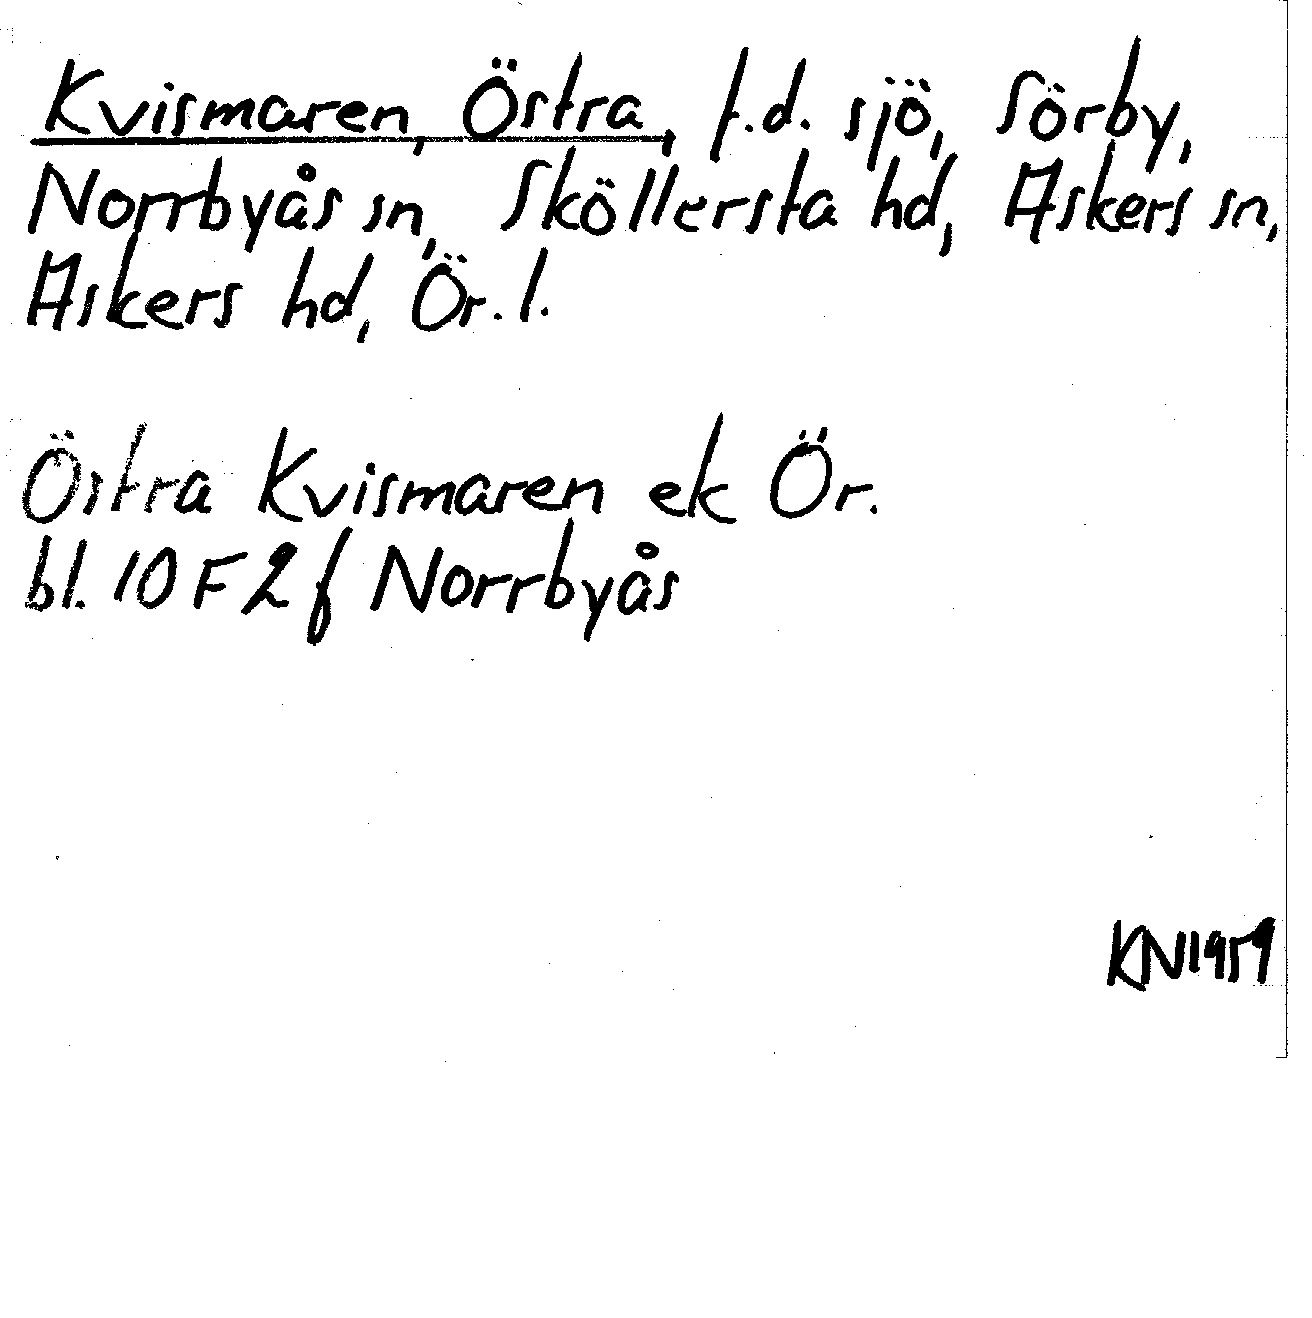 Kvismaren, Östra, f.d. sjö, Sörby,
Norrbyås sn, Sköllersta hd, Askers sn,
Askers hd, Ör. l.
Östra Kvismaren ek Ör.
bl. 10 F 2 f Norrbyås
KN 1959